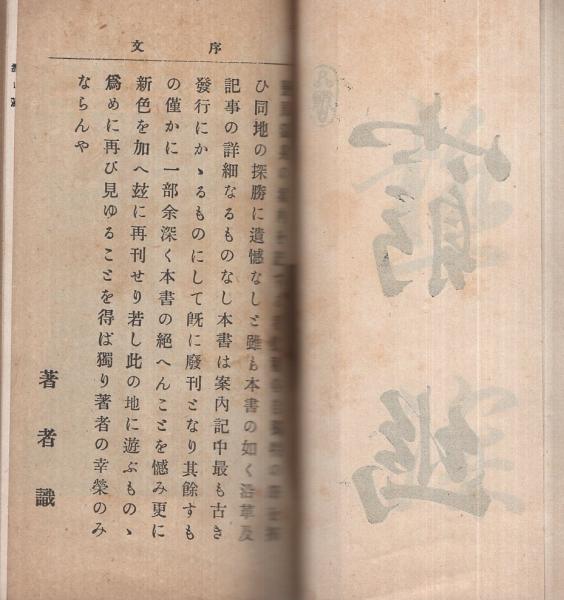 序文
ひ同地の探勝に遺憾なしと雖も本書の如く沿革及
記事の詳細なるものなし本書は案內記中最も古き
發行にかゝるものにして既に廢刊となり其餘すも
の僅かに一部余深く本書の絕へんことを憾み更に
新色を加へ玆に再刊せり若し此の地に遊ぶものゝ
爲めに再び見ゆることを得ば獨り著者の幸榮のみ
ならんや
著者識